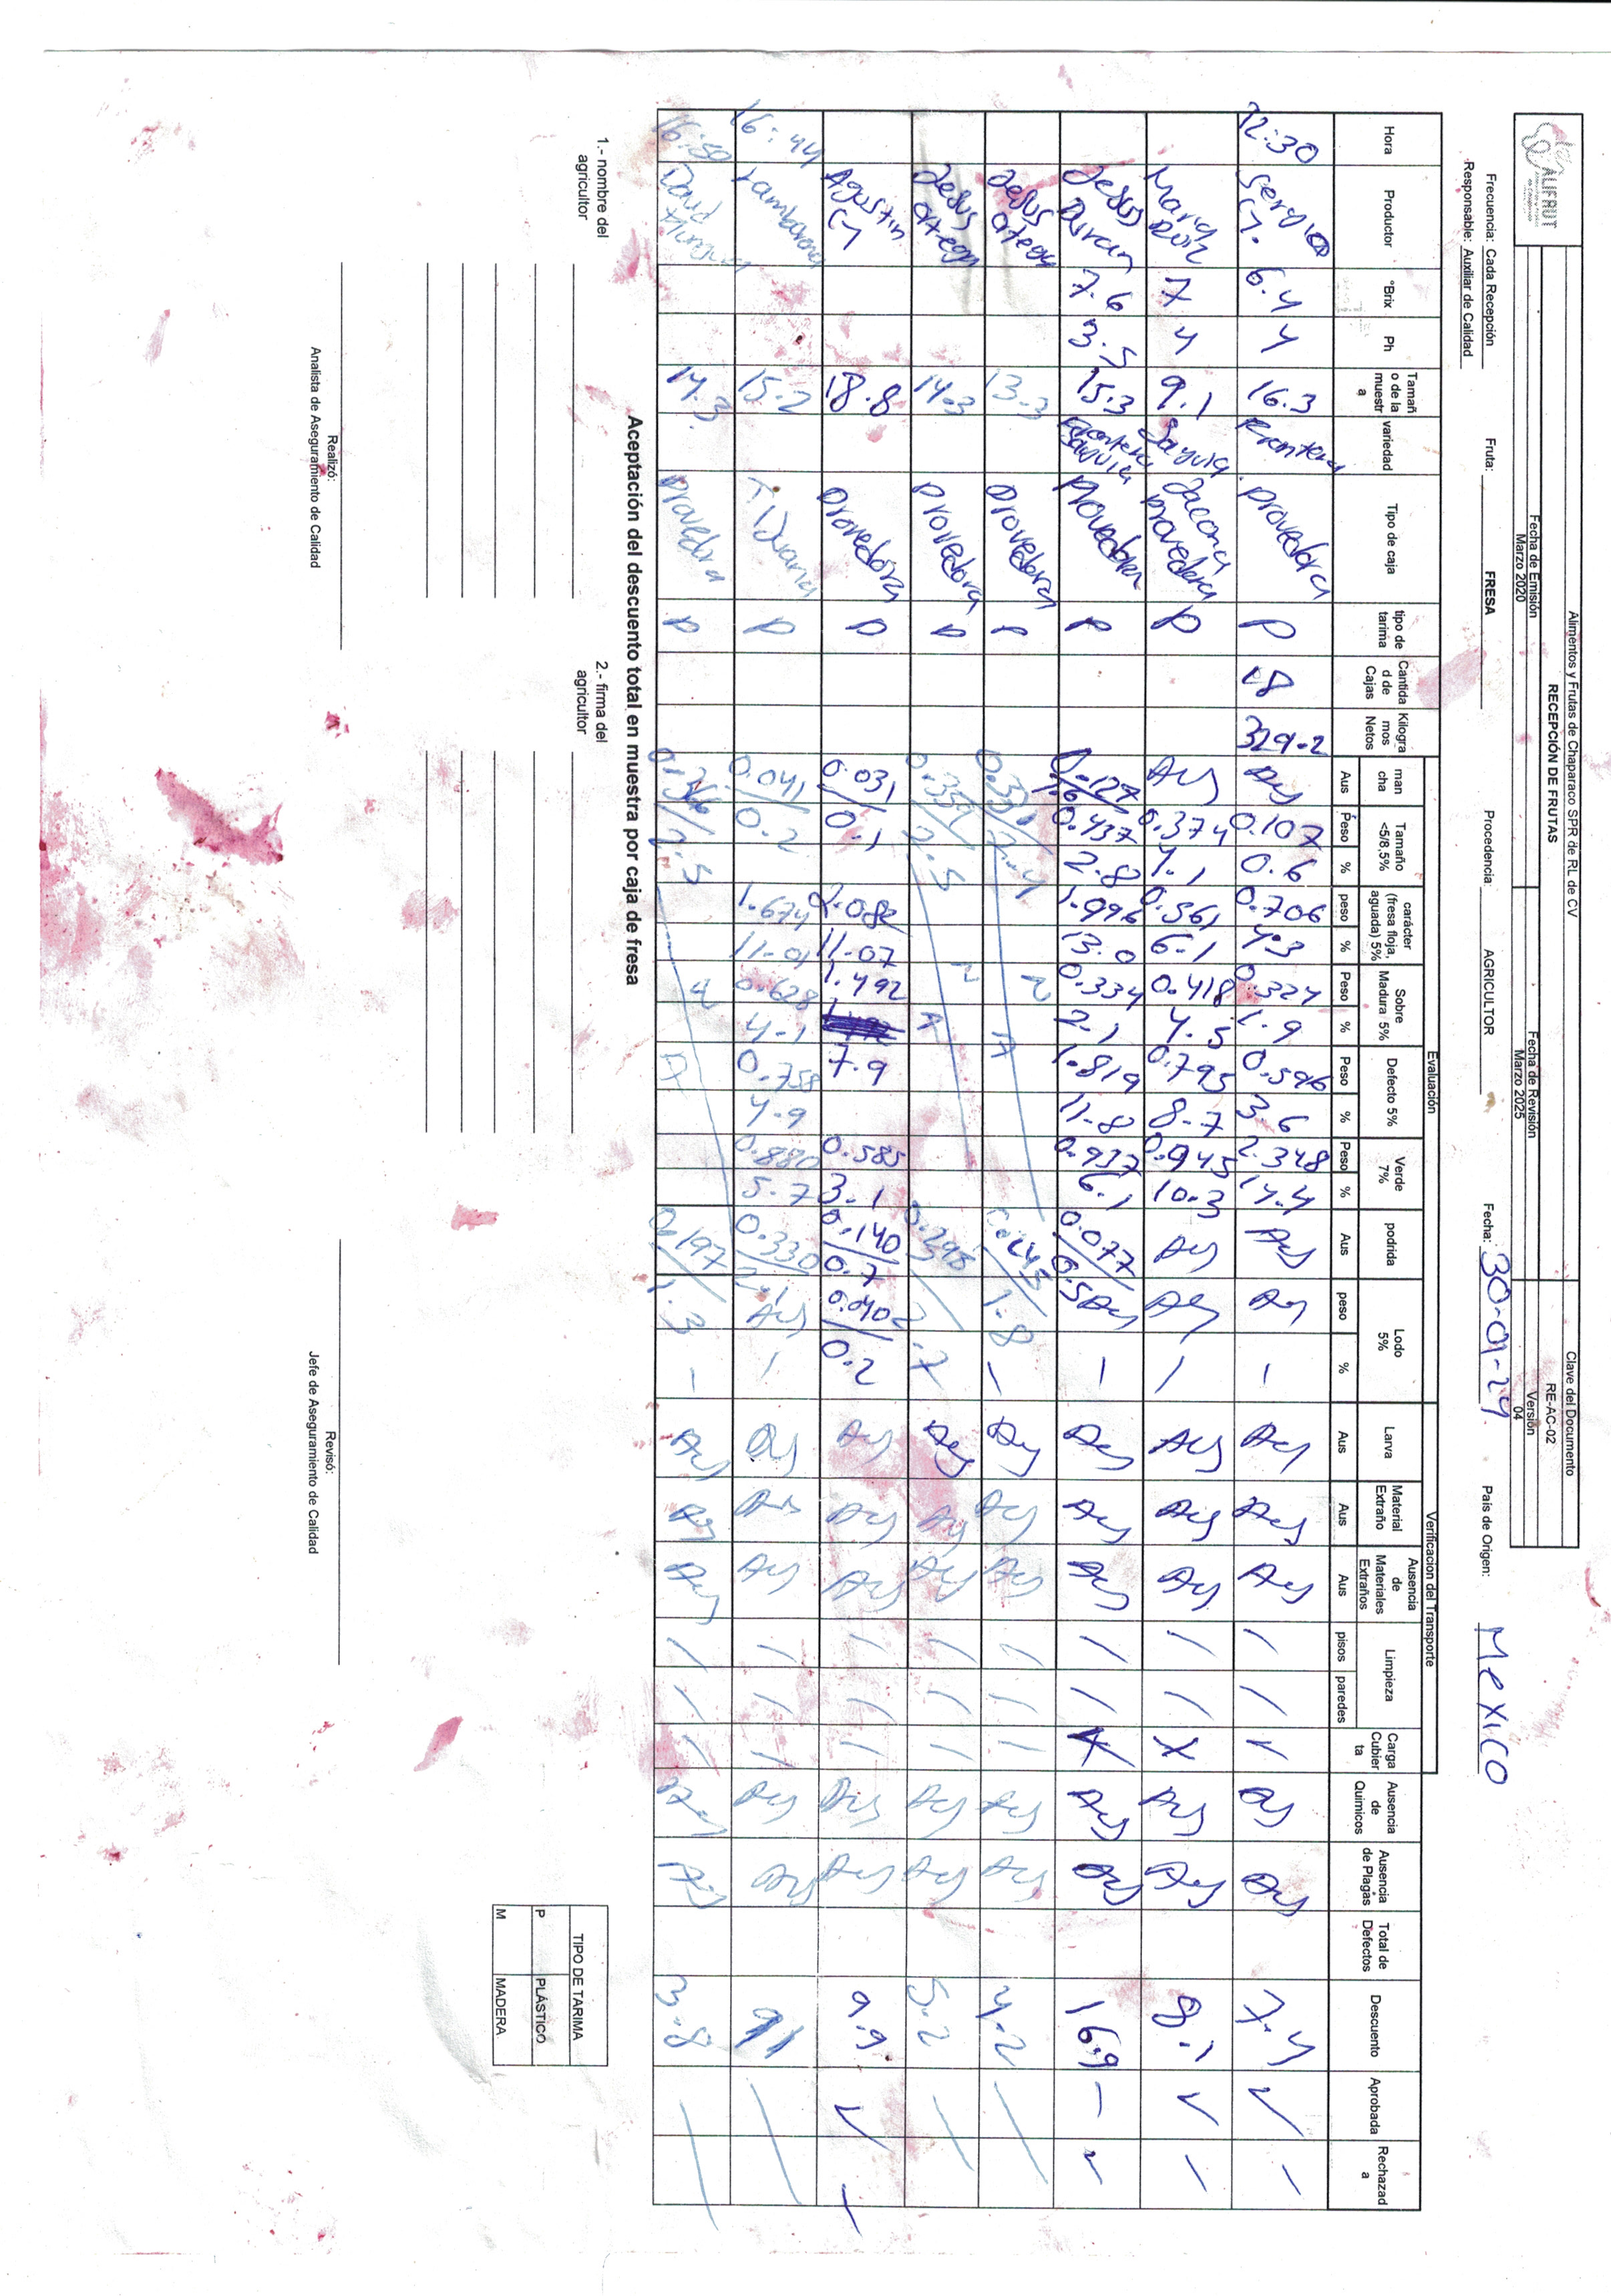 ALIFRUT
Alimentos y Frutas de Chaparaco SPR de RL de CV
RECEPCIÓN DE FRUTAS
Fecha de Emisión
Marzo 2020
Fecha de Revisión
Marzo 2025
Clave del Documento
RE-AC-02
Versión
04
Frecuencia: Cada Recepción Fruta: FRESA Procedencia AGRICULTOR Fecha: 30-01-24 País de Origen: Mexico
Responsable: Auxiliar de Calidad
Evaluación Verificacion del Transporte
Hora Productor °Brix Ph Tamaño de la muestra variedad Tipo de caja tipo de tarima Cantidad de Cajas Kilogramos Netos mancha Tamaño <5/8,5% carácter (fresa floja, aguada) 5% Sobre Madura 5% Defecto 5% Verde 7% podrida Lodo 5% Larva Material Extraño Ausencia de Materiales Extraños Limpieza Carga Cubierta Ausencia de Quimicos Ausencia de Plagas Total de Defectos Descuento Aprobada Rechazada
Aus Peso % peso % Peso % Peso % Peso % Aus peso % Aus Aus Aus pisos paredes
12:30 Sergio 6.4 4 16.3 Frontera Provedora P 18 Aus 0.107 0.6 0.706 4.3 0.324 1.9 0.596 3.6 2.348 14.4 Aus Aus - Aus Aus Aus / / ✓ Aus Aus 7.4 ✓ -
Maria Ruiz 7 4 9.1 Sayula Jacona Provedora P Aus 0.374 4.1 0.561 6.1 0.418 4.5 0.795 8.7 0.945 10.3 Aus Aus / Aus Aus Aus / / X Aus Aus 9.1 ✓ -
Jesus Duran 7.6 3.5 15.3 Frontera Sayula Provedora P 0.437 2.8 1.996 13.0 0.334 2.1 1.819 11.8 0.937 6.1 0.077/0.5 Aus / Aus Aus Aus / / X Aus Aus 16.9 - ✓
Jesus Ortega 13.3 Provedora P N A 1.8 - Aus Aus Aus / / / Aus Aus 4.2 /
Jesus Ortega 14.3 Provedora P 2.5 N A 0.298 2.7 Aus Aus Aus / / / Aus Aus 5.2 /
Agustin 18.8 Provedora P 0.031/0.1 11.07 1.492 7.9 0.585 3.1 0.140/0.7 0.040/0.2 Aus Aus Aus / / / Aus Aus 9.9 ✓ -
16:44 Zambrano 15.2 Tijuana P 0.041/0.2 11.01 0.628 4.1 0.758 4.9 0.880 5.7 0.330 Aus / Aus Aus Aus / / / Aus Aus /
16:50 David 14.3 Provedora P 2.5 N A 0.197/1.3 - Aus Aus Aus / / / Aus Aus 3.8 /
Aceptación del descuento total en muestra por caja de fresa
1.- nombre del agricultor
2.- firma del agricultor
TIPO DE TARIMA
P PLÁSTICO
M MADERA
Realizó:
Analista de Aseguramiento de Calidad
Revisó:
Jefe de Aseguramiento de Calidad